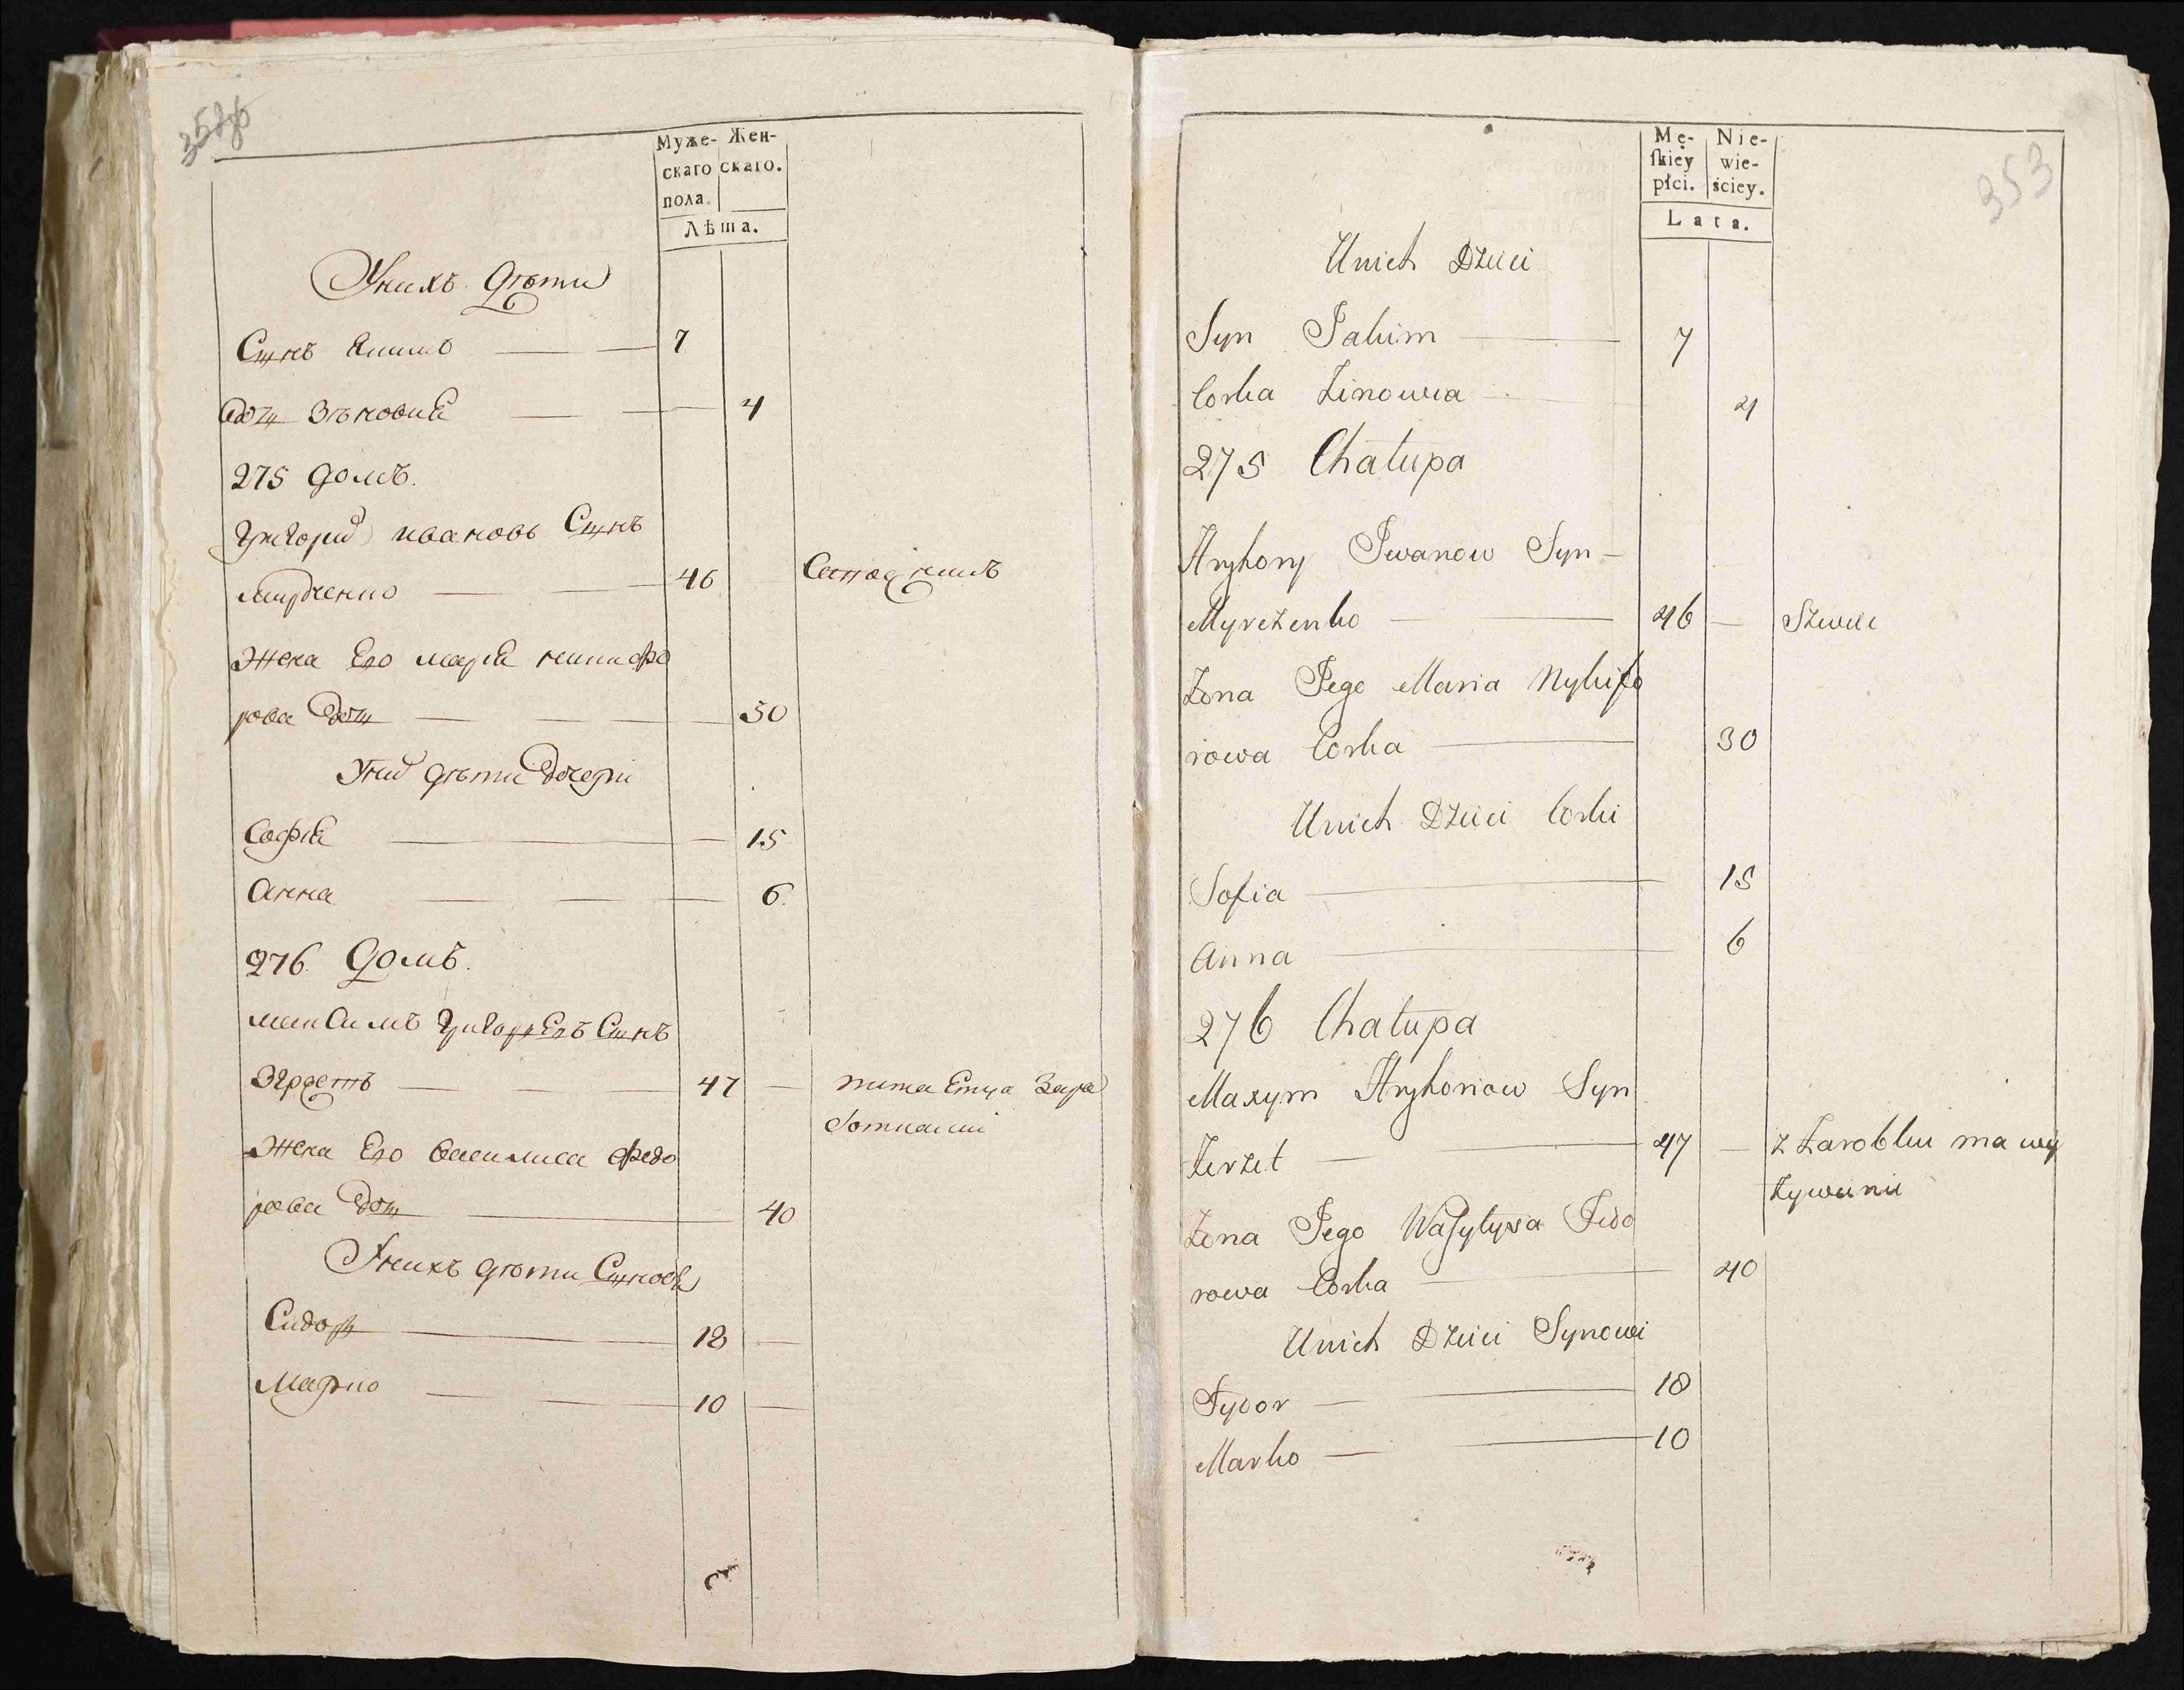 Муже- Жен-
скаго скаго.
пола.
Лѣта.
Унихъ дѣти
Сынъ Якимъ 7
Дочь Зѣновия 4
275 домъ.
Григорий ивановъ Сынъ
мирченко 46 Сапожникъ
Жена Его мария никифо
рова Дочь 30
Унихъ дѣти Дочери
София 15
Анна 6
276 домъ.
максимъ Григориевъ Сынъ
47 питаетца Зара
ботками
Жена Его василиса федо
рова Дочь 40
Унихъ дѣти Сыновья
Сидоръ 18
Марко 10
353
Mę- Nie-
ſkiey wie-
płci. ściey.
Lata.
Unich Dzieci
Syn Jakim 7
Corka Zinowia 4
275 Chałupa
Hryhory Iwanow Syn
Myrczenko 46 Szewc
Zona Jego Maria Nykifo
rowa Corka 30
Unich Dzieci Corki
Sofia 15
Anna 6
276 Chałupa
Maxym Hryhoriow Syn
Zerzet 47 z Zarobku ma wy
Zywienie
Zona Jego Wasylysa Fedo
rowa Corka 40
Unich Dzieci Synowi
Sydor 18
Marko 10